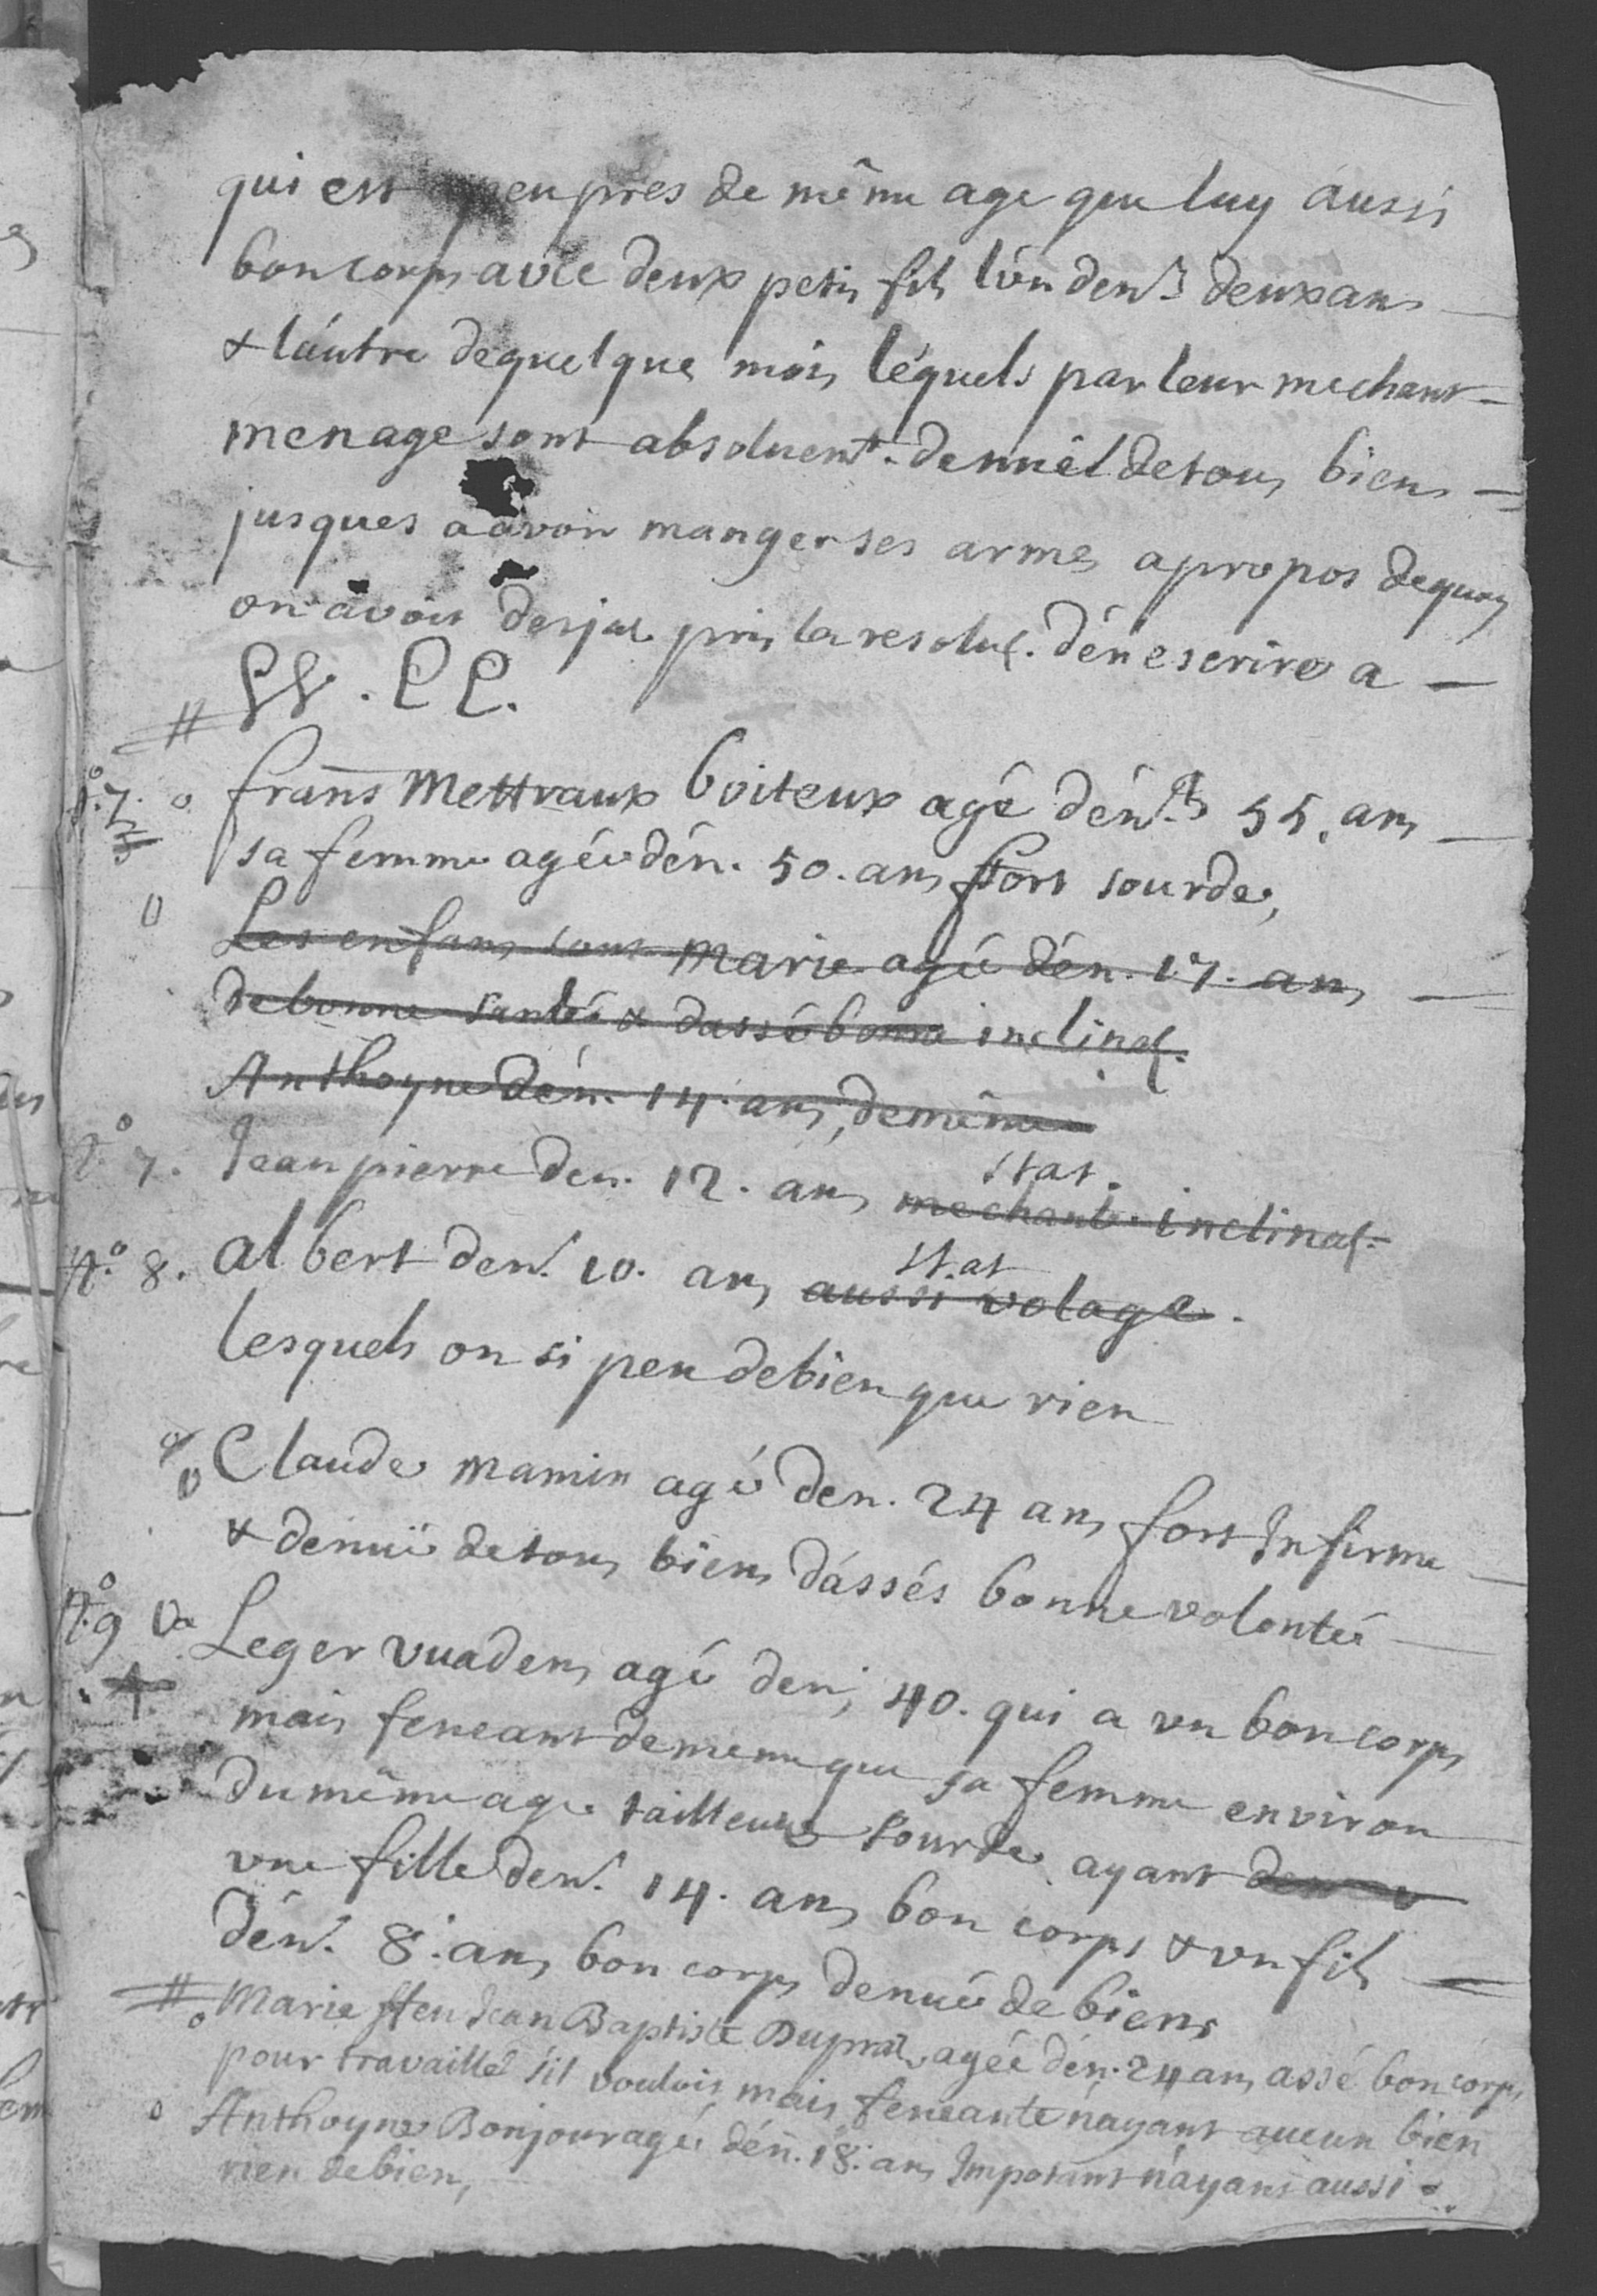 qui est a peu pres de même age que luy aussi
bon corps avec deux petis fils l'ún den.n deux ans
& láutre de quelque mois léquels par leur mechant
menage sont absoluent. dennél de tous biens
jusques a avoir manger ses armes apropos dequoy
on avoit desjat pris la resolut. dén escrire a
LL. EE.
N.o 7. o frans Mettraux boiteux agé dén.n 55. ans
sa femme agée dén. 50. ans fort sourde,
o Les enfans sont Marie agé dén. 17. ans
de bonne santé & dassé bonne inclinat.
Anthoyne dén. 14. ans, de même
N.o 7. Jean pierre den. 12. ans mechante inclinat. stat.
N.o 8. albert den. 10. ans aussi volage. stat
lesquels on si peu de bien que rien
o Claude Mamin agé den. 24 ans fort Infirme
& denuë de tous biens dássés bonne volonté
N.o 9 Leger vuadens agé den. 40. qui a un bon corps
mais feneant de meme que sa femme environ
du même age tailleuse sourde ayant
une fille den. 14. ans bon corps & un fils
dén. 8. ans bon corps denué de biens
o Marie ffeu Jean Baptiste Dupraz agée dén. 24 ans assé bon corps
pour travaillé sil voulois mais feneante náyant aucun bien
o Anthoyne Bonjour agé dén. 18. ans Impotant náyans aussi
rien de bien,